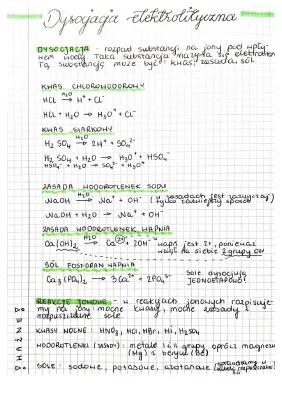 Dysocjacja elektrolityczna
DYSOCJACJA - rozpad substancji na jony pod wpły-
nem wody. Taka substancja nazywa się elektrolitem
Tą substancją może być: kwas, zasada, sól.
KWAS CHLOROWODOROWY
HCl →H₂O H⁺ + Cl⁻
HCl + H₂O → H₃O⁺ + Cl⁻
KWAS SIARKOWY
H₂SO₄ →H₂O 2H⁺ + SO₄²⁻
H₂SO₄ + H₂O → H₃O⁺ + HSO₄⁻
HSO₄⁻ + H₂O → H₃O⁺ + SO₄²⁻
ZASADA WODOROTLENEK SODU
NaOH →H₂O Na⁺ + OH⁻ (w zasadach jest zazwyczaj tylko pierwszy sposób)
NaOH + H₂O → Na⁺ + OH⁻
ZASADA WODOROTLENEK WAPNIA
Ca(OH)₂ →H₂O Ca²⁺ + 2OH⁻ wapń jest 2+, ponieważ
wziął na siebie 2 grupy OH
SÓL FOSFORAN WAPNIA
Ca₃(PO₄)₂ → 3Ca²⁺ + 2PO₄³⁻ Sole dysocjują
JEDNOETAPOWO!
REAKCJE JONOWE - w reakcjach jonowych rozpisuje-
my na jony: mocne kwasy, mocne zasady i
rozpuszczalne sole.
KWASY MOCNE: HNO₃, HCl, HBr, HI, H₂SO₄
WODOROTLENKI (ZASADY): metale I i II grupy oprócz magnezu
(Mg) i berylu (Be)
SOLE: sodowe, potasowe, azotanowe